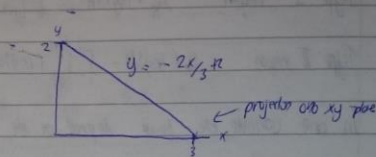 y
2
y = -2x/3 + 2
projection onto xy plane
x
3